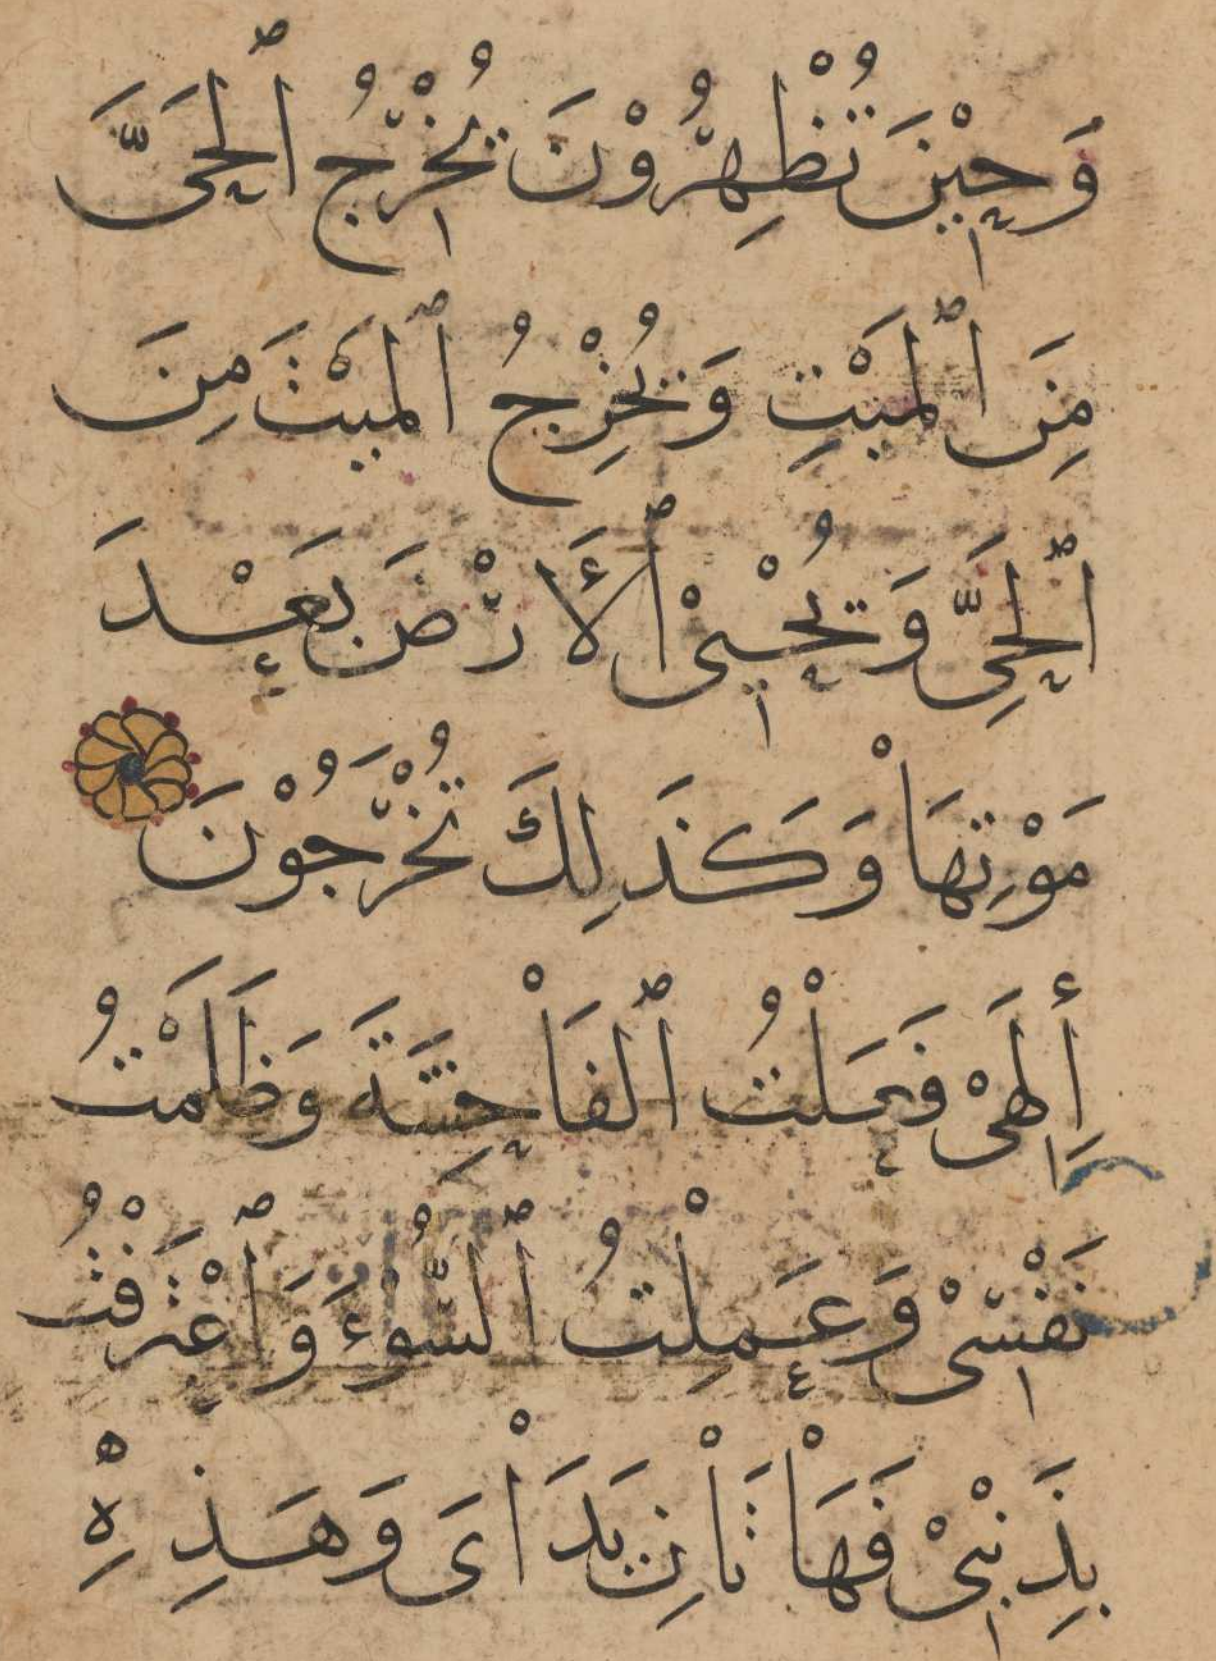 وَحِيْنَ تُظْهِرُوْنَ تُخْرِجُ ٱلحَىَّ
مِنَ ٱلمَيْتِ وَتُخْرِجُ ٱلمَيْتَ مِنَ
ٱلحَىِّ وَتُحْيِىْ ٱلأَرْضَ بَعْدَ
مَوْتِهَاْ وَكَذَلِكَ تُخْرَجُوْنَ
إِلَهِىْ فَعَلْتُ ٱلفَاْحِشَةَ وَظَلَمْتُ
نَفْسِىْ وَعَمِلْتُ ٱلسُّوْءَ وَٱعْتَرَفْتُ
بِذَنْبِىْ فَهَاْتَاْنِ يَدَاْىَ وَهَذِهِ